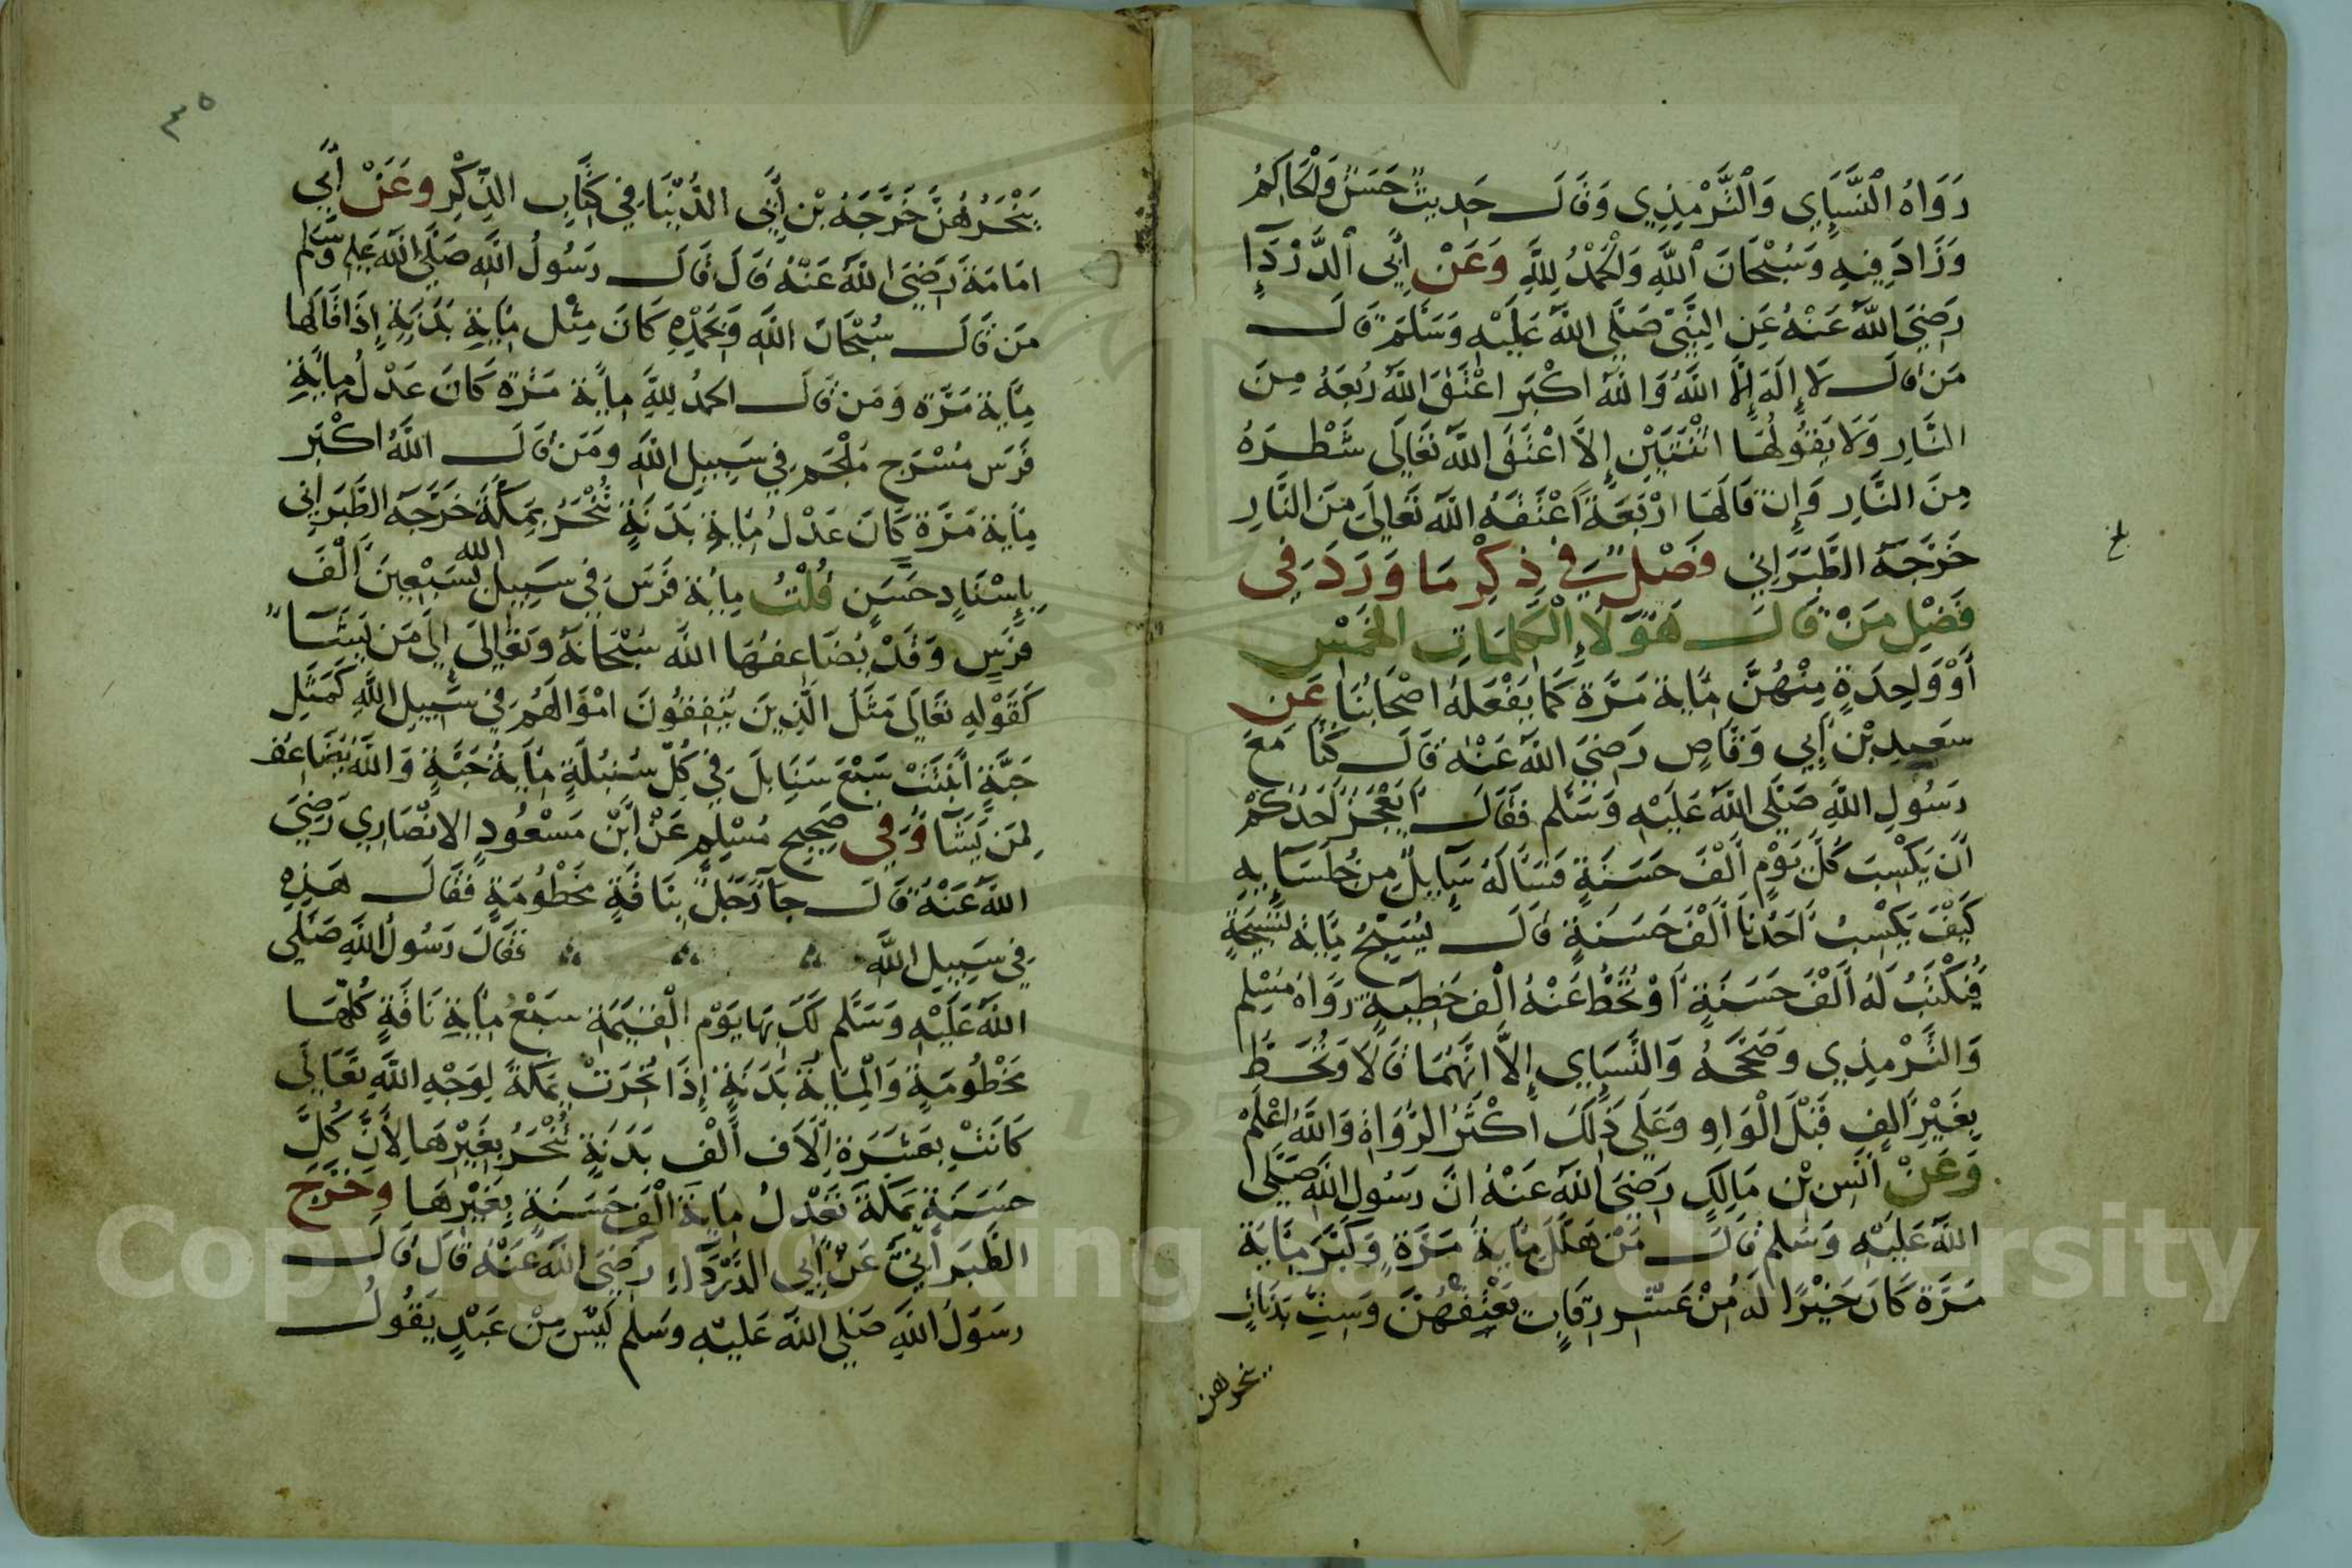 رَوَاهُ النَّسَاي وَالتِّرْمِذِي وَقَالَ حَدِيثٌ حَسَنٌ وَالْحَاكِمُ
وَزَادَ فِيهِ وَسُبْحَانَ اللَّهِ وَالْحَمْدُ لِلَّهِ وَعَنْ أَبِي الدَّرْدَآءِ
رَضِيَ اللَّهُ عَنْهُ عَنِ النَّبِيِّ صَلَّى اللَّهُ عَلَيْهِ وَسَلَّمَ قَالَ
مَنْ قَالَ لَا إِلَهَ إِلَّا اللَّهُ وَاللَّهُ اكْبَر اعْتَقَ اللَّهُ رُبْعَهُ مِنَ
النَّارِ وَلَا يَقُولُهَا اثْنَتَيْنِ إِلَّا اعْتَقَ اللَّهُ تَعَالَى شَطْرَهُ
مِنَ النَّارِ وَإِنْ قَالَهَا ارْبَعَةً أَعْتَقَهُ اللَّهُ تَعَالَى مِنَ النَّارِ
خَرَّجَهُ الطَّبَرَانِي فَصْلٌ فِي ذِكْرِ مَا وَرَدَ فِي
فَضْلِ مَنْ قَالَ هَؤُلَاءِ الْكَلِمَاتِ الْخَمْسِ
أَوْ وَاحِدَةٍ مِنْهُنَّ مِايةَ مَرَّةٍ كَمَا يَفْعَلهُ اصْحَابُنَا عَنْ
سَعِيدِ بْنِ أَبِي وَقَّاصٍ رَضِيَ اللَّهُ عَنْهُ قَالَ كُنَّا مَعَ
رَسُولِ اللَّهِ صَلَّى اللَّهُ عَلَيْهِ وَسَلَّم فَقَالَ أَيَعْجَزُ احَدُكُمْ
أَنْ يَكْسِبَ كُلَّ يَوْمٍ أَلْفَ حَسَنَةٍ فَسَأَلَهُ سَآيِلٌ مِنْ جُلَسَآيِهِ
كَيْفَ يَكْسِبُ أَحَدُنَا أَلْفَ حَسَنَةٍ قَالَ يُسَبِّحُ مِايةَ تَسْبِيحَةٍ
فَيُكْتَبُ لَهُ أَلْفَ حَسَنَةٍ أَوْ تُحَطُّ عَنْهُ أَلْف خَطِيَّةٍ رَوَاهُ مُسْلِم
وَالتِّرْمِذِي وَصَحَّحَهُ وَالنَّسَاي إِلَّا انَّهُمَا قَالَا وَتُحَطُّ
بِغَيْرِ أَلِفٍ قَبْلَ الْوَاوِ وَعَلَى ذَلِكَ أَكْثَرُ الرُّوَاةِ وَاللَّهُ اعْلَمْ
وَعَنْ أَنَسِ بْنِ مَالِكٍ رَضِيَ اللَّهُ عَنْهُ انَّ رَسُولَ اللَّهِ صَلَّى
اللَّهُ عَلَيْهِ وَسَلَّم قَالَ مَنْ هَلَّلَ مِايةَ مَرَّةٍ وَكَبَّرَ مِايَةَ
مَرَّةٍ كَانَ خَيْرًا لَه مِنْ عَشْرِ رِقَابٍ يَعْتِقُهُنَّ وَسِتِّ بَدَنَاتٍ
ينحرهن
بلغ
٣٥
يَنْحَرُهُنَّ خَرَّجَهُ بْنِ أَبِي الدُّنْيَا فِي كِتَابِ الذِّكْرِ وَعَنْ أَبِي
امَامَةَ رَضِيَ اللَّهُ عَنْهُ قَالَ قَالَ رَسُولُ اللَّهِ صَلَّى اللَّهُ عَلَيْهِ وَسَلَّم
مَن قَالَ سُبْحَانَ اللَّهِ وَبِحَمْدِهِ كَانَ مِثْلَ مِايةِ بَدَنَةٍ إِذَا قَالَهَا
مِايةَ مَرَّةٍ وَمَن قَالَ الحمدُ لِلَّهِ مِايةَ مَرَّةٍ كَانَ عَدْلُ مِايةِ
فَرَسٍ مُسْرَجٍ مُلْجَمٍ فِي سَبِيلِ اللَّهِ وَمَن قَالَ اللَّهُ اكْبَر
مِايةَ مَرَّةٍ كَانَ عَدْلُ مِايةِ بَدَنَةٍ تُنْحَرُ بِمَكَّةَ خَرَّجَهُ الطَّبَرَانِي
بِإِسْنَادٍ حَسَنٍ قُلْتُ مِايةُ فَرَسٍ فِي سَبِيلِ الله بِسَبْعِينَ أَلْفَ
فَرَسٍ وَقَدْ يُضَاعِفُهَا اللَّهُ سُبْحَانَهُ وَتَعَالَى إِلَى مَن يَشَآ
كَقَوْلِهِ تَعَالَى مَثَلُ الَّذِينَ يُنْفِقُونَ امْوَالَهُمْ فِي سَبِيلِ اللَّهِ كَمَثَلِ
حَبَّةٍ أَنْبَتَتْ سَبْعَ سَنَابِلَ فِي كُلِّ سُنْبُلَةٍ مِايةُ حَبَّةٍ وَاللَّهُ يُضَاعِفُ
لِمَنْ يَشَآ وَفِي صَحِيحِ مُسْلِمٍ عَنْ ابْنِ مَسْعُودٍ الانْصَارِي رَضِيَ
اللَّهُ عَنْهُ قَالَ جَآ رَجُلٌ بِنَاقَةٍ مَخْطُومَةٍ فَقَالَ هَذِهِ
فِي سَبِيلِ اللَّهِ فَقَالَ رَسُولُ اللَّهِ صَلَّى
اللَّهُ عَلَيْهِ وَسَلَّم لَكَ بِهَا يَوْمَ الْقِيَمَةِ سَبْعُ مِايةِ نَاقَةٍ كُلُّهَا
مَخْطُومَةٍ وَالْمِايةُ بَدَنَةٍ إِذَا نُحِرَتْ بِمَكَّةَ لِوَجْهِ اللَّهِ تَعَالَى
كَانَتْ بِعَشَرَةِ الَافِ أَلْفِ بَدَنَةٍ تُنْحَرُ بِغَيْرِهَا لِأَنَّ كُلَّ
حَسَنَةٍ بِمَكَّةَ تَعْدِلُ مِايةَ أَلْفِ حَسَنَةٍ بِغَيْرِهَا وَخَرَّجَ
الطَّبَرَانِيُّ عَنْ أَبِي الدَّرْدَاءِ رَضِيَ اللَّهُ عَنْهُ قَالَ قَالَ
رَسُولُ اللَّهِ صَلَّى اللَّهُ عَلَيْهِ وَسَلَّم لَيْسَ مِنْ عَبْدٍ يَقُولُ
Copyright © King Saud University